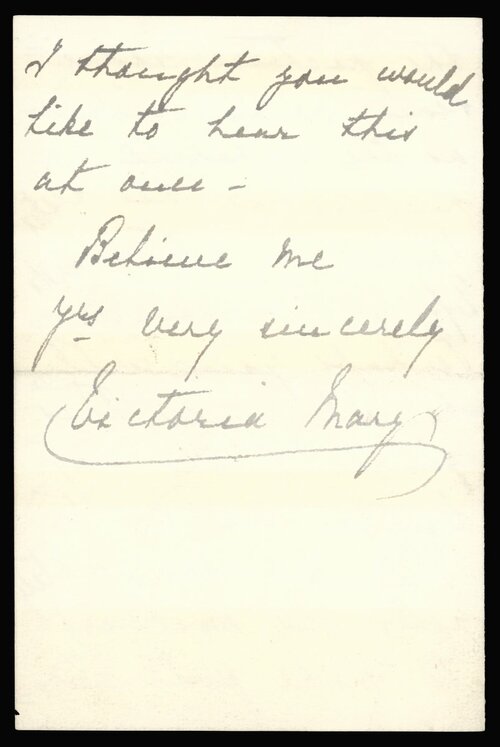 I thought you would
like to hear this
at once –
Believe me
yrs very sincerely
Victoria Mary